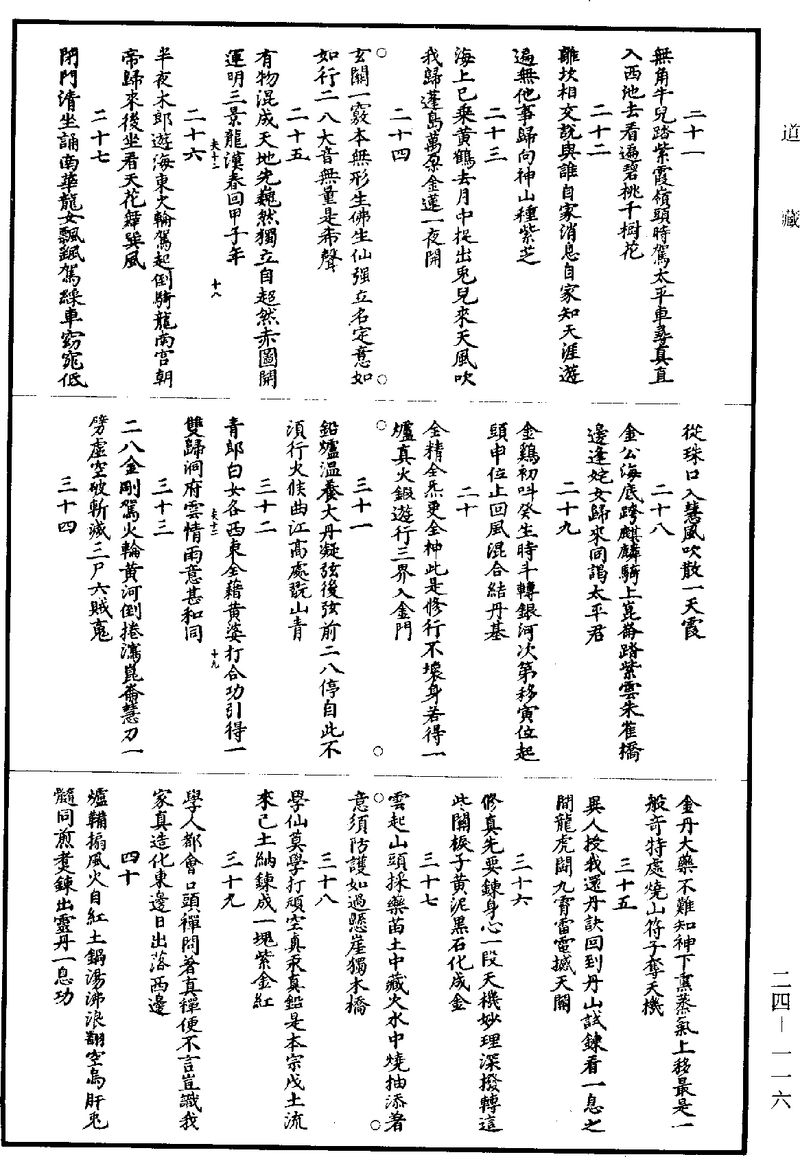 道藏
二十一
無角牛兒踏紫霞嶺頭時駕太平車尋真直
入西池去看遍碧桃千樹花
二十二
離坎相交說與誰自家消息自家知天涯遊
遍無他事歸向神山種紫芝
二十三
海上已乘黃鶴去月中捉出兎兒來天風吹
我歸蓬島萬朵金蓮一夜開
二十四
○玄關一竅本無形生佛生仙强立名定意如○
如行二八大音無量是希聲
二十五
有物混成天地先巍然獨立自超然赤圖開
運明三景龍漢春回甲子年
夫十二 十八
二十六
半夜木郎遊海東火輪駕起倒騎龍南宫朝
帝歸來後坐看天花舞巽風
二十七
閉門清坐誦南華龍女飄飄駕綵車窈窕低
從珠口入慧風吹散一天霞
二十八
金公海底跨麒麟騎上崑崙踏紫雲朱雀橋
邊逢姹女歸來同謁太平君
二十九
金鷄初呌癸生時斗轉銀河次第移寅位起
頭申位止回風混合結丹基
二十
全精全炁更全神此是修行不壞身若得一
爐真火鍛遊行三界入金門
三十一
○鉛爐温養大丹凝弦後弦前二八停自此不○
須行火候曲江高處翫山青
三十二
青郎白女各西東全藉黃婆打合功引得一
雙歸洞府雲情雨意甚和同
夫十二 十九
三十三
二八金剛駕火輪黃河倒捲瀉崑崙慧刀一
劈虛空破斬滅三尸六賊䰟
三十四
金丹大藥不難知神下熏蒸氣上移最是一
般奇特處燒山符子奪天機
三十五
異人授我還丹訣回到丹山試鍊看一息之
間龍虎鬭九霄雷電撼天關
三十六
修真先要鍊身心一段天機妙理深撥轉這
些關棙子黃泥黑石化成金
三十七
雲起山頭採藥苗土中藏火水中燒抽添着
○意須防護如過懸崖獨木橋○
三十八
學仙莫學打頑空真汞真鉛是本宗戊土流
來己土納鍊成一塊紫金紅
三十九
學人都會口頭禪問著真禪便不言豈識我
家真造化東邊日出落西邊
四十
爐鞴搧風火自紅土鍋湯沸浪翻空烏肝兎
髓同煎煑鍊出靈丹一息功
二四—一一六